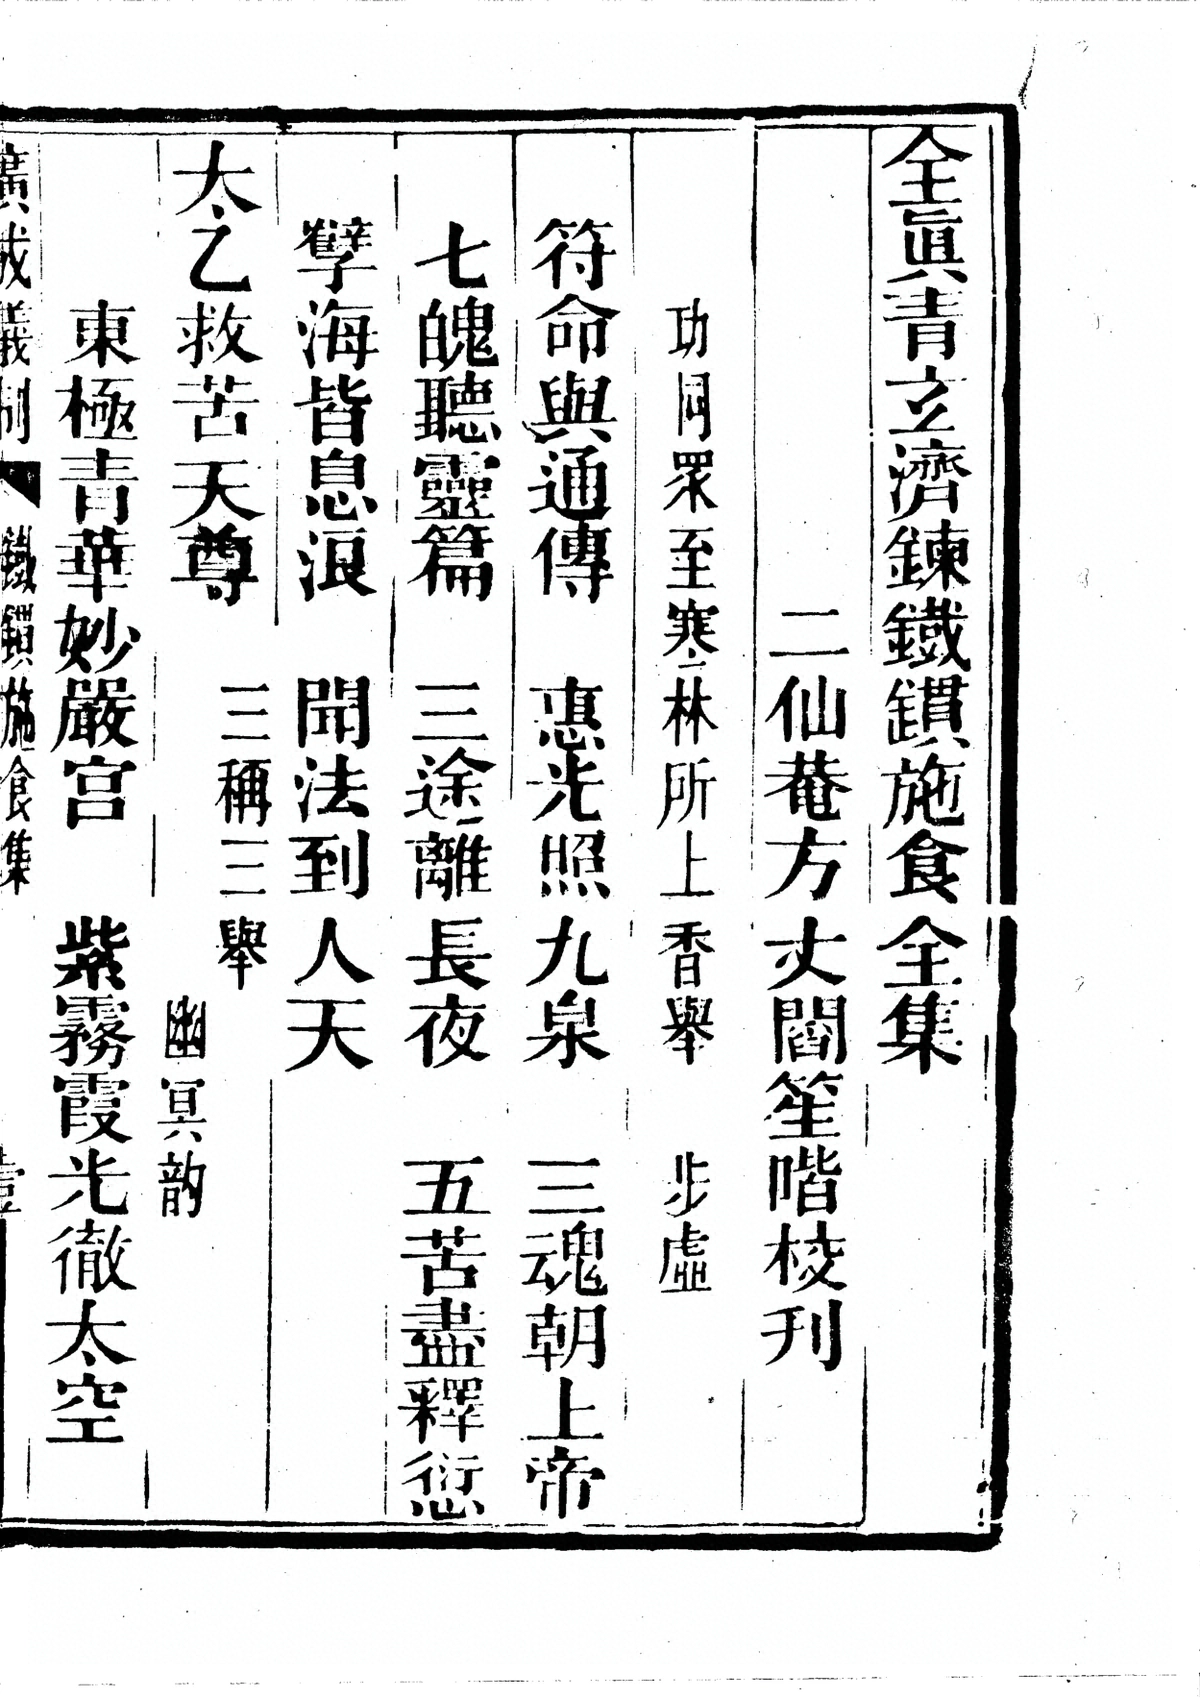 全眞青玄濟鍊鐵鑵施食全集
二仙菴方丈閻笙喈校刊
功同眾至寒林所上香舉　步虛
符命與通傳　惪光照九泉　三魂朝上帝
七魄聽靈篇　三途離長夜　五苦盡釋愆
孽海皆息浪　聞法到人天
三稱三舉
太乙救苦天尊
幽冥韵
東極青華妙嚴宮　紫霧霞光徹太空
廣成儀制　鐵鑵施食集　壹